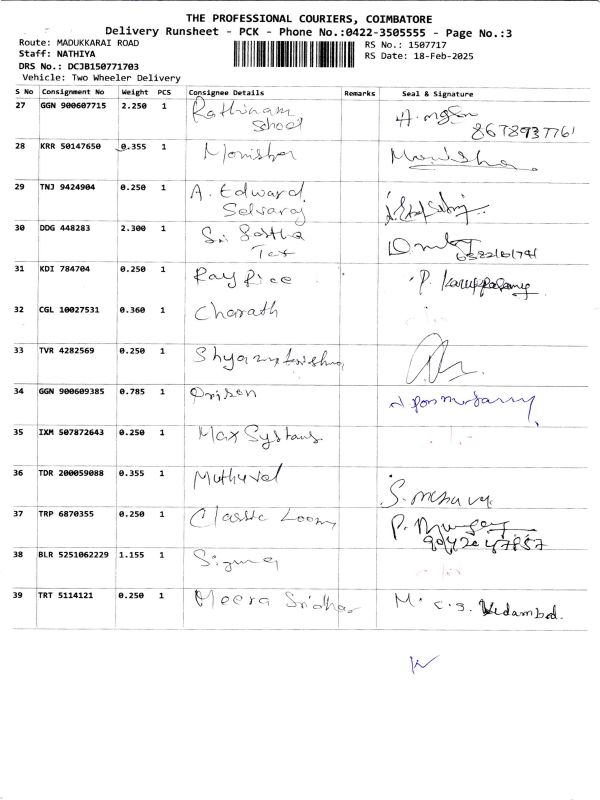 THE PROFESSIONAL COURIERS, COIMBATORE
Delivery Runsheet - PCK - Phone No.:0422-3505555 - Page No.:3
Route: MADUKKARAI ROAD
RS No.: 1507717
Staff: NATHIYA
RS Date: 18-Feb-2025
DRS No.: DCJB150771703
Vehicle: Two Wheeler Delivery
S No Consignment No Weight PCS Consignee Details Remarks Seal & Signature
27 GGN 900607715 2.250 1 Rathinam
School
8678937761
28 KRR 50147650 0.355 1 Monisha Monisha
29 TNJ 9424904 0.250 1 A. Edward
Selvaraj
30 DDG 448283 2.300 1 Sri Sastha
Tex
31 KDI 784704 0.250 1 Ray Rice P. Karuppasamy
32 CGL 10027531 0.360 1 Charath
33 TVR 4282569 0.250 1 Shyam Krishna
34 GGN 900609385 0.785 1
35 IXM 507872643 0.250 1 Max Systems
36 TDR 200059088 0.355 1 Muthuvel
37 TRP 6870355 0.250 1 Classic Looms P.
38 BLR 5251062229 1.155 1
39 TRT 5114121 0.250 1 Meera Sridhar M. C. S. Vedambal.